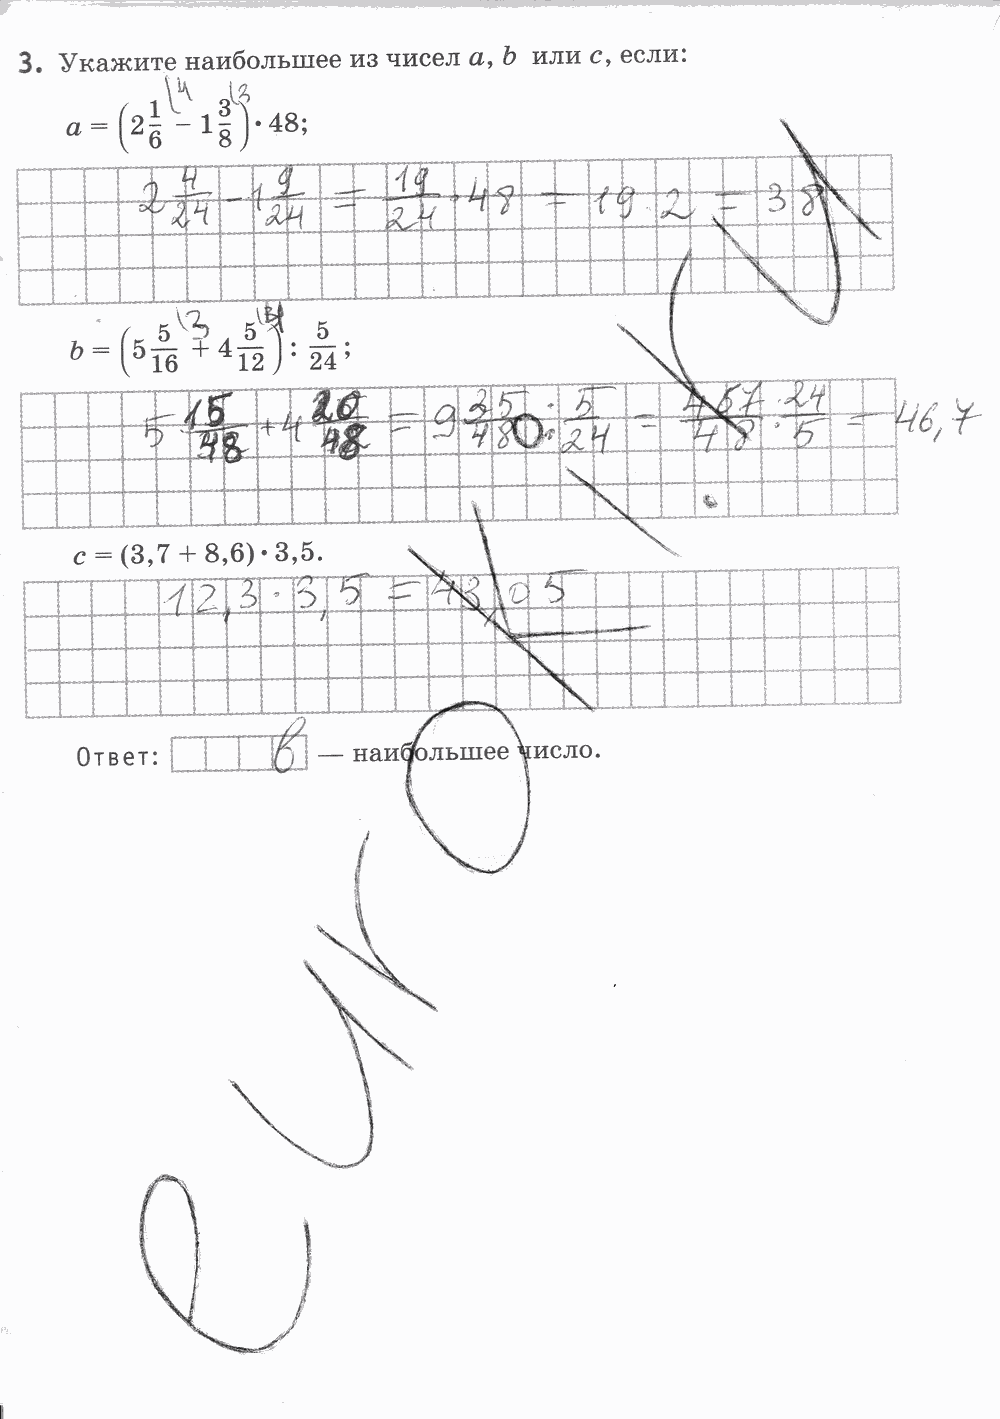 3. Укажите наибольшее из чисел a, b или c, если:
a = (2 1/6 − 1 3/8) · 48;
2 4/24 − 1 9/24 = 19/24 · 48 = 19 · 2 = 38
b = (5 5/16 + 4 5/12) : 5/24;
5 15/48 + 4 20/48 = 9 35/48 : 5/24 = 467/48 · 24/5 = 46,7
c = (3,7 + 8,6) · 3,5.
12,3 · 3,5 = 43,05
Ответ: в — наибольшее число.